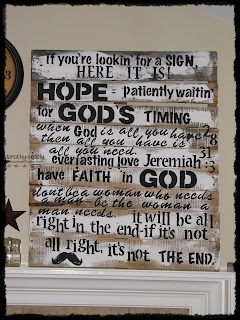 If you're lookin' for a SIGN,
HERE IT IS!
HOPE = patiently waitin'
for GOD'S TIMING
when God is all you have,
then all you have is
all you need.
everlasting love Jeremiah 31:3
have FAITH in GOD
don't be a woman who needs
a man - be the woman a
man needs. it will be all
right in the end - if it's not
all right, it's not THE END.